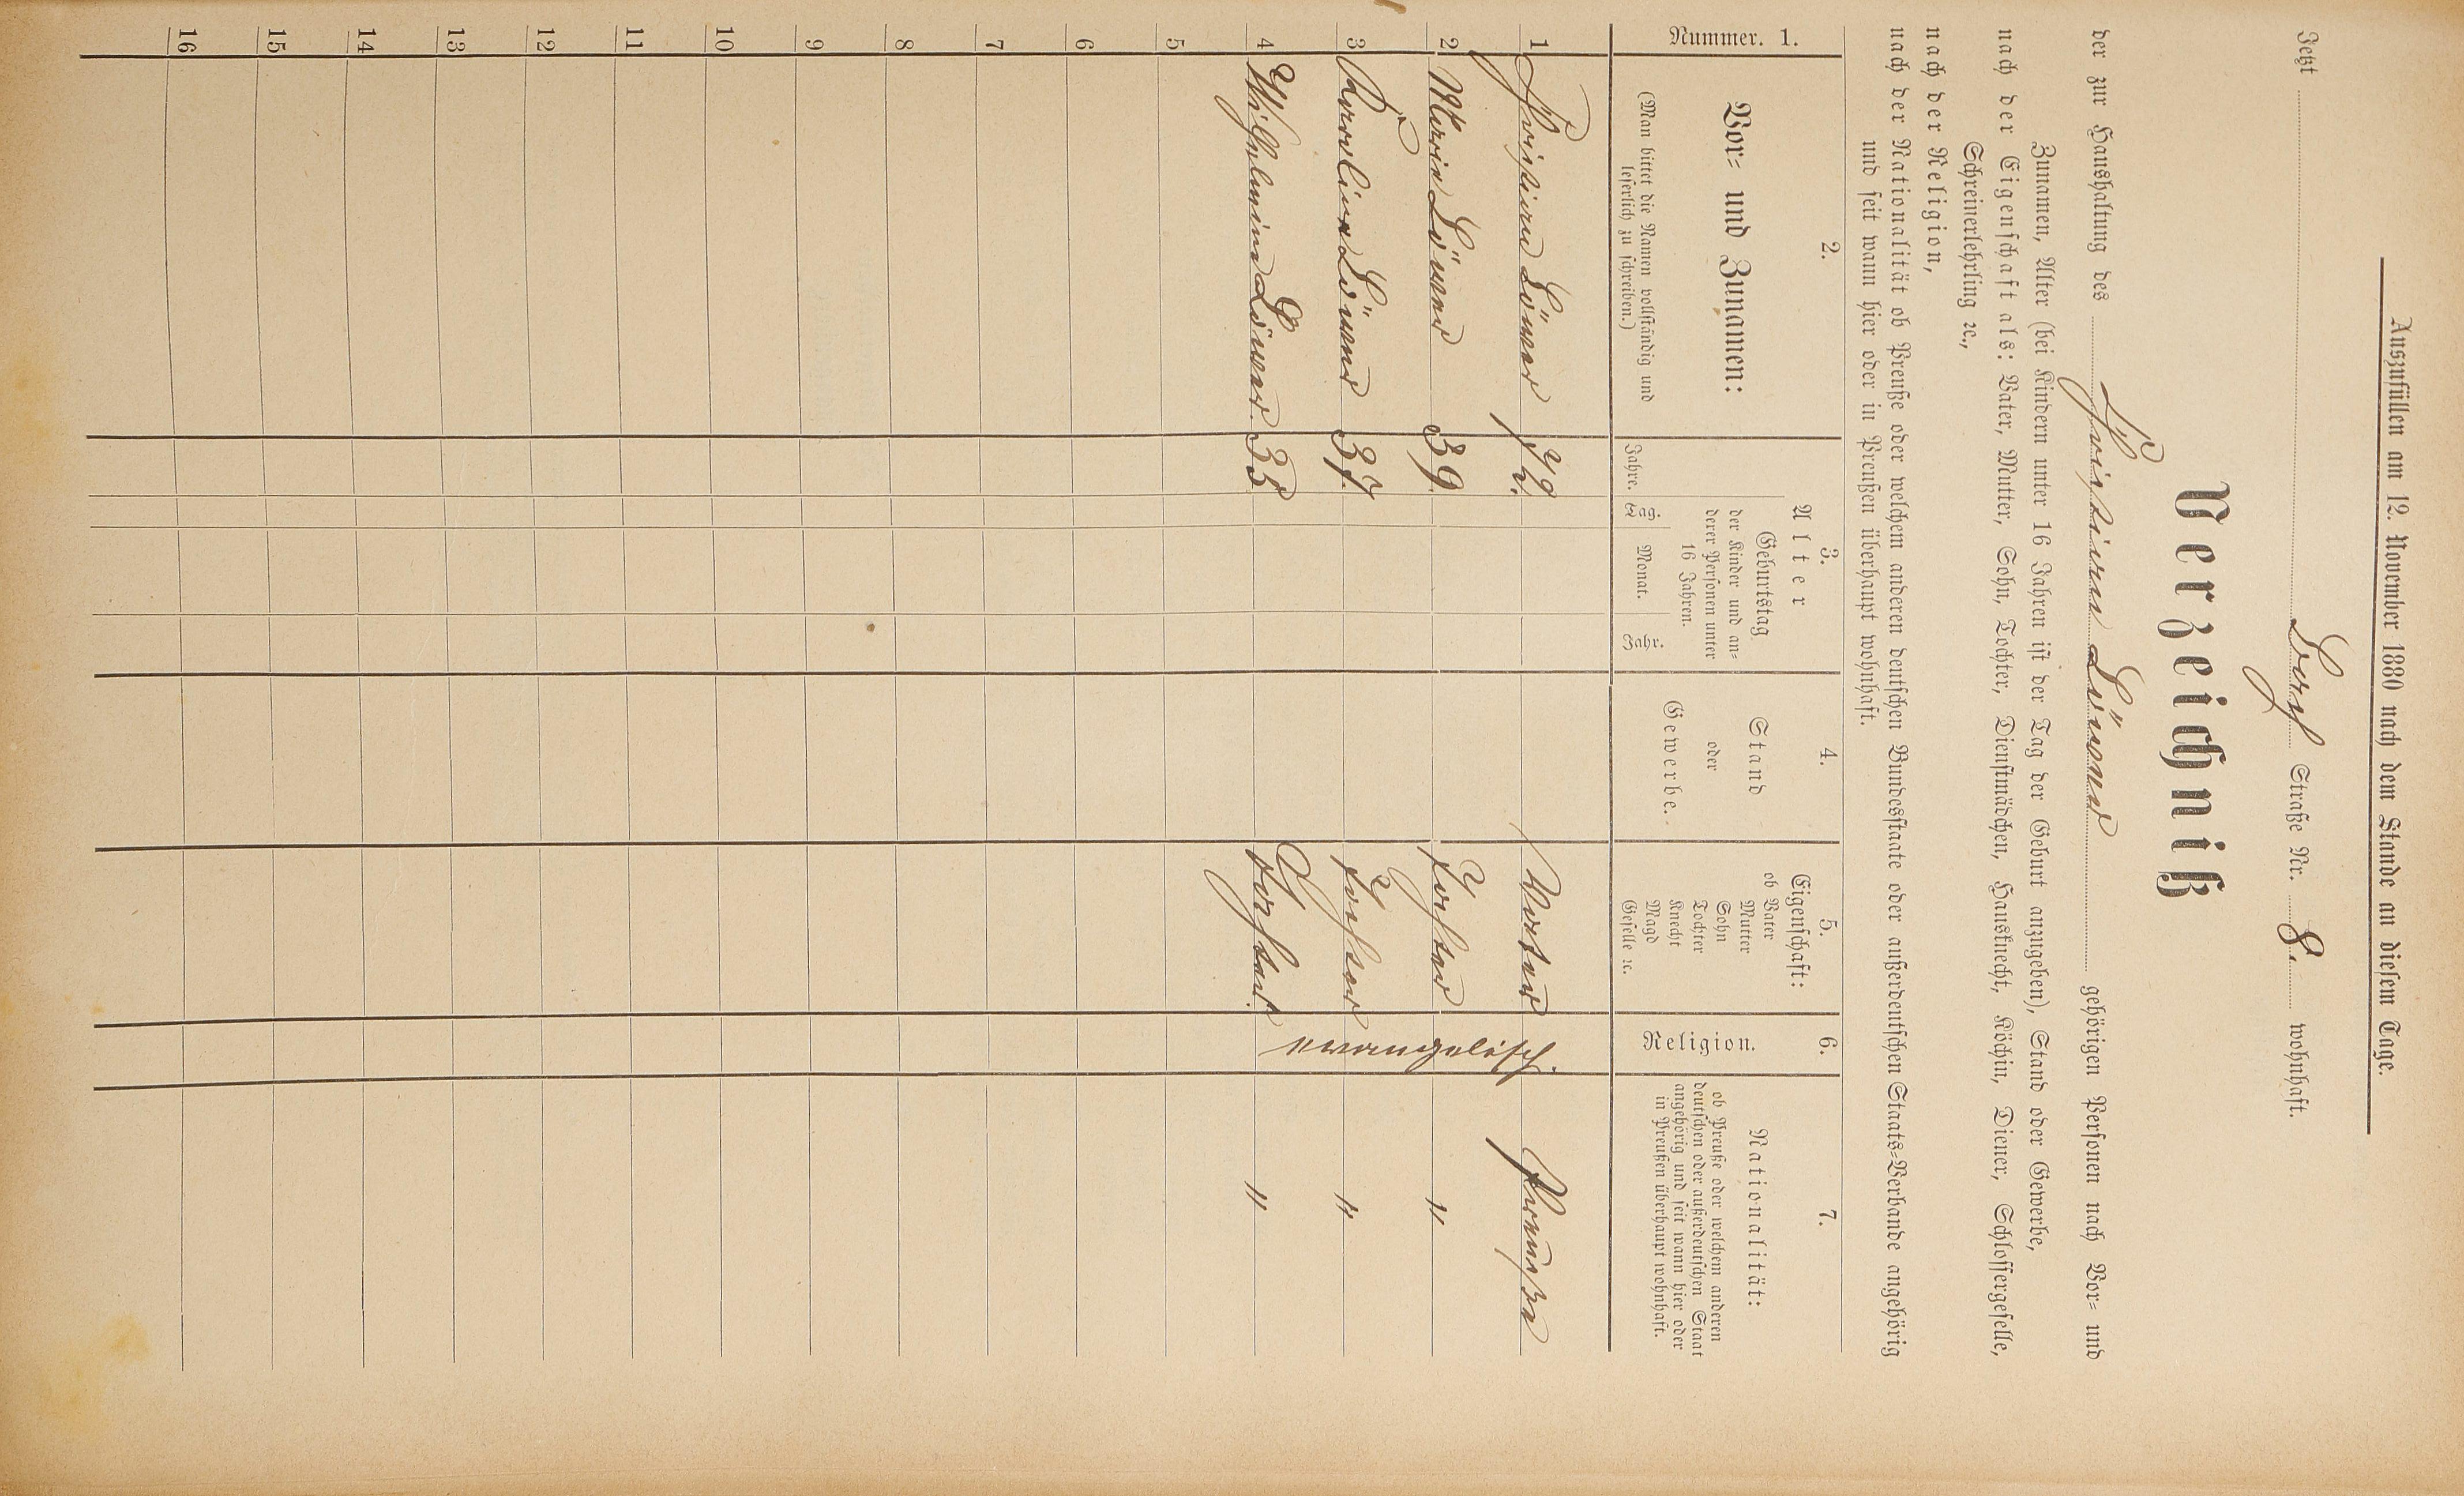 Auszufüllen am 12. November 1880 nach dem Stande an diesem Tage.
Jetzt Straße Nr. 8. wohnhaft.
Verzeichniß
der zur Haushaltung des Christian Löwer gehörigen Personen nach Vor- und
Zunamen, Alter (bei Kindern unter 16 Jahren ist der Tag der Geburt anzugeben), Stand oder Gewerbe,
nach der Eigenschaft als: Vater, Mutter, Sohn, Tochter, Dienstmädchen, Hausknecht, Köchin, Diener, Schlossergeselle,
Schreinerlehrling ꝛc.,
nach der Religion,
nach der Nationalität ob Preuße oder welchem anderen deutschen Bundesstaate oder außerdeutschen Staats-Verbande angehörig
und seit wann hier oder in Preußen überhaupt wohnhaft.
Nummer. 1.
2.
Vor- und Zunamen:
(Man bittet die Namen vollständig und
leserlich zu schreiben.)
3.
Alter
Geburtstag
der Kinder und an-
derer Personen unter
16 Jahren.
Jahre.
Tag.
Monat.
Jahr.
4.
Stand
oder
Gewerbe.
5.
Eigenschaft:
ob Vater
Mutter
Sohn
Tochter
Knecht
Magd
Geselle ꝛc.
6.
Religion.
7.
Nationalität:
ob Preuße oder welchem anderen
deutschen oder außerdeutschen Staat
angehörig und seit wann hier oder
in Preußen überhaupt wohnhaft.
1 Christian Löwer 72. Vater evangelisch. Preuße
2 Marie Löwer 39. Tochter "
3 Karoline Löwer 37. Tochter "
4 Wilhelmine Löwer. 33 Tochter. "
5
6
7
8
9
10
11
12
13
14
15
16